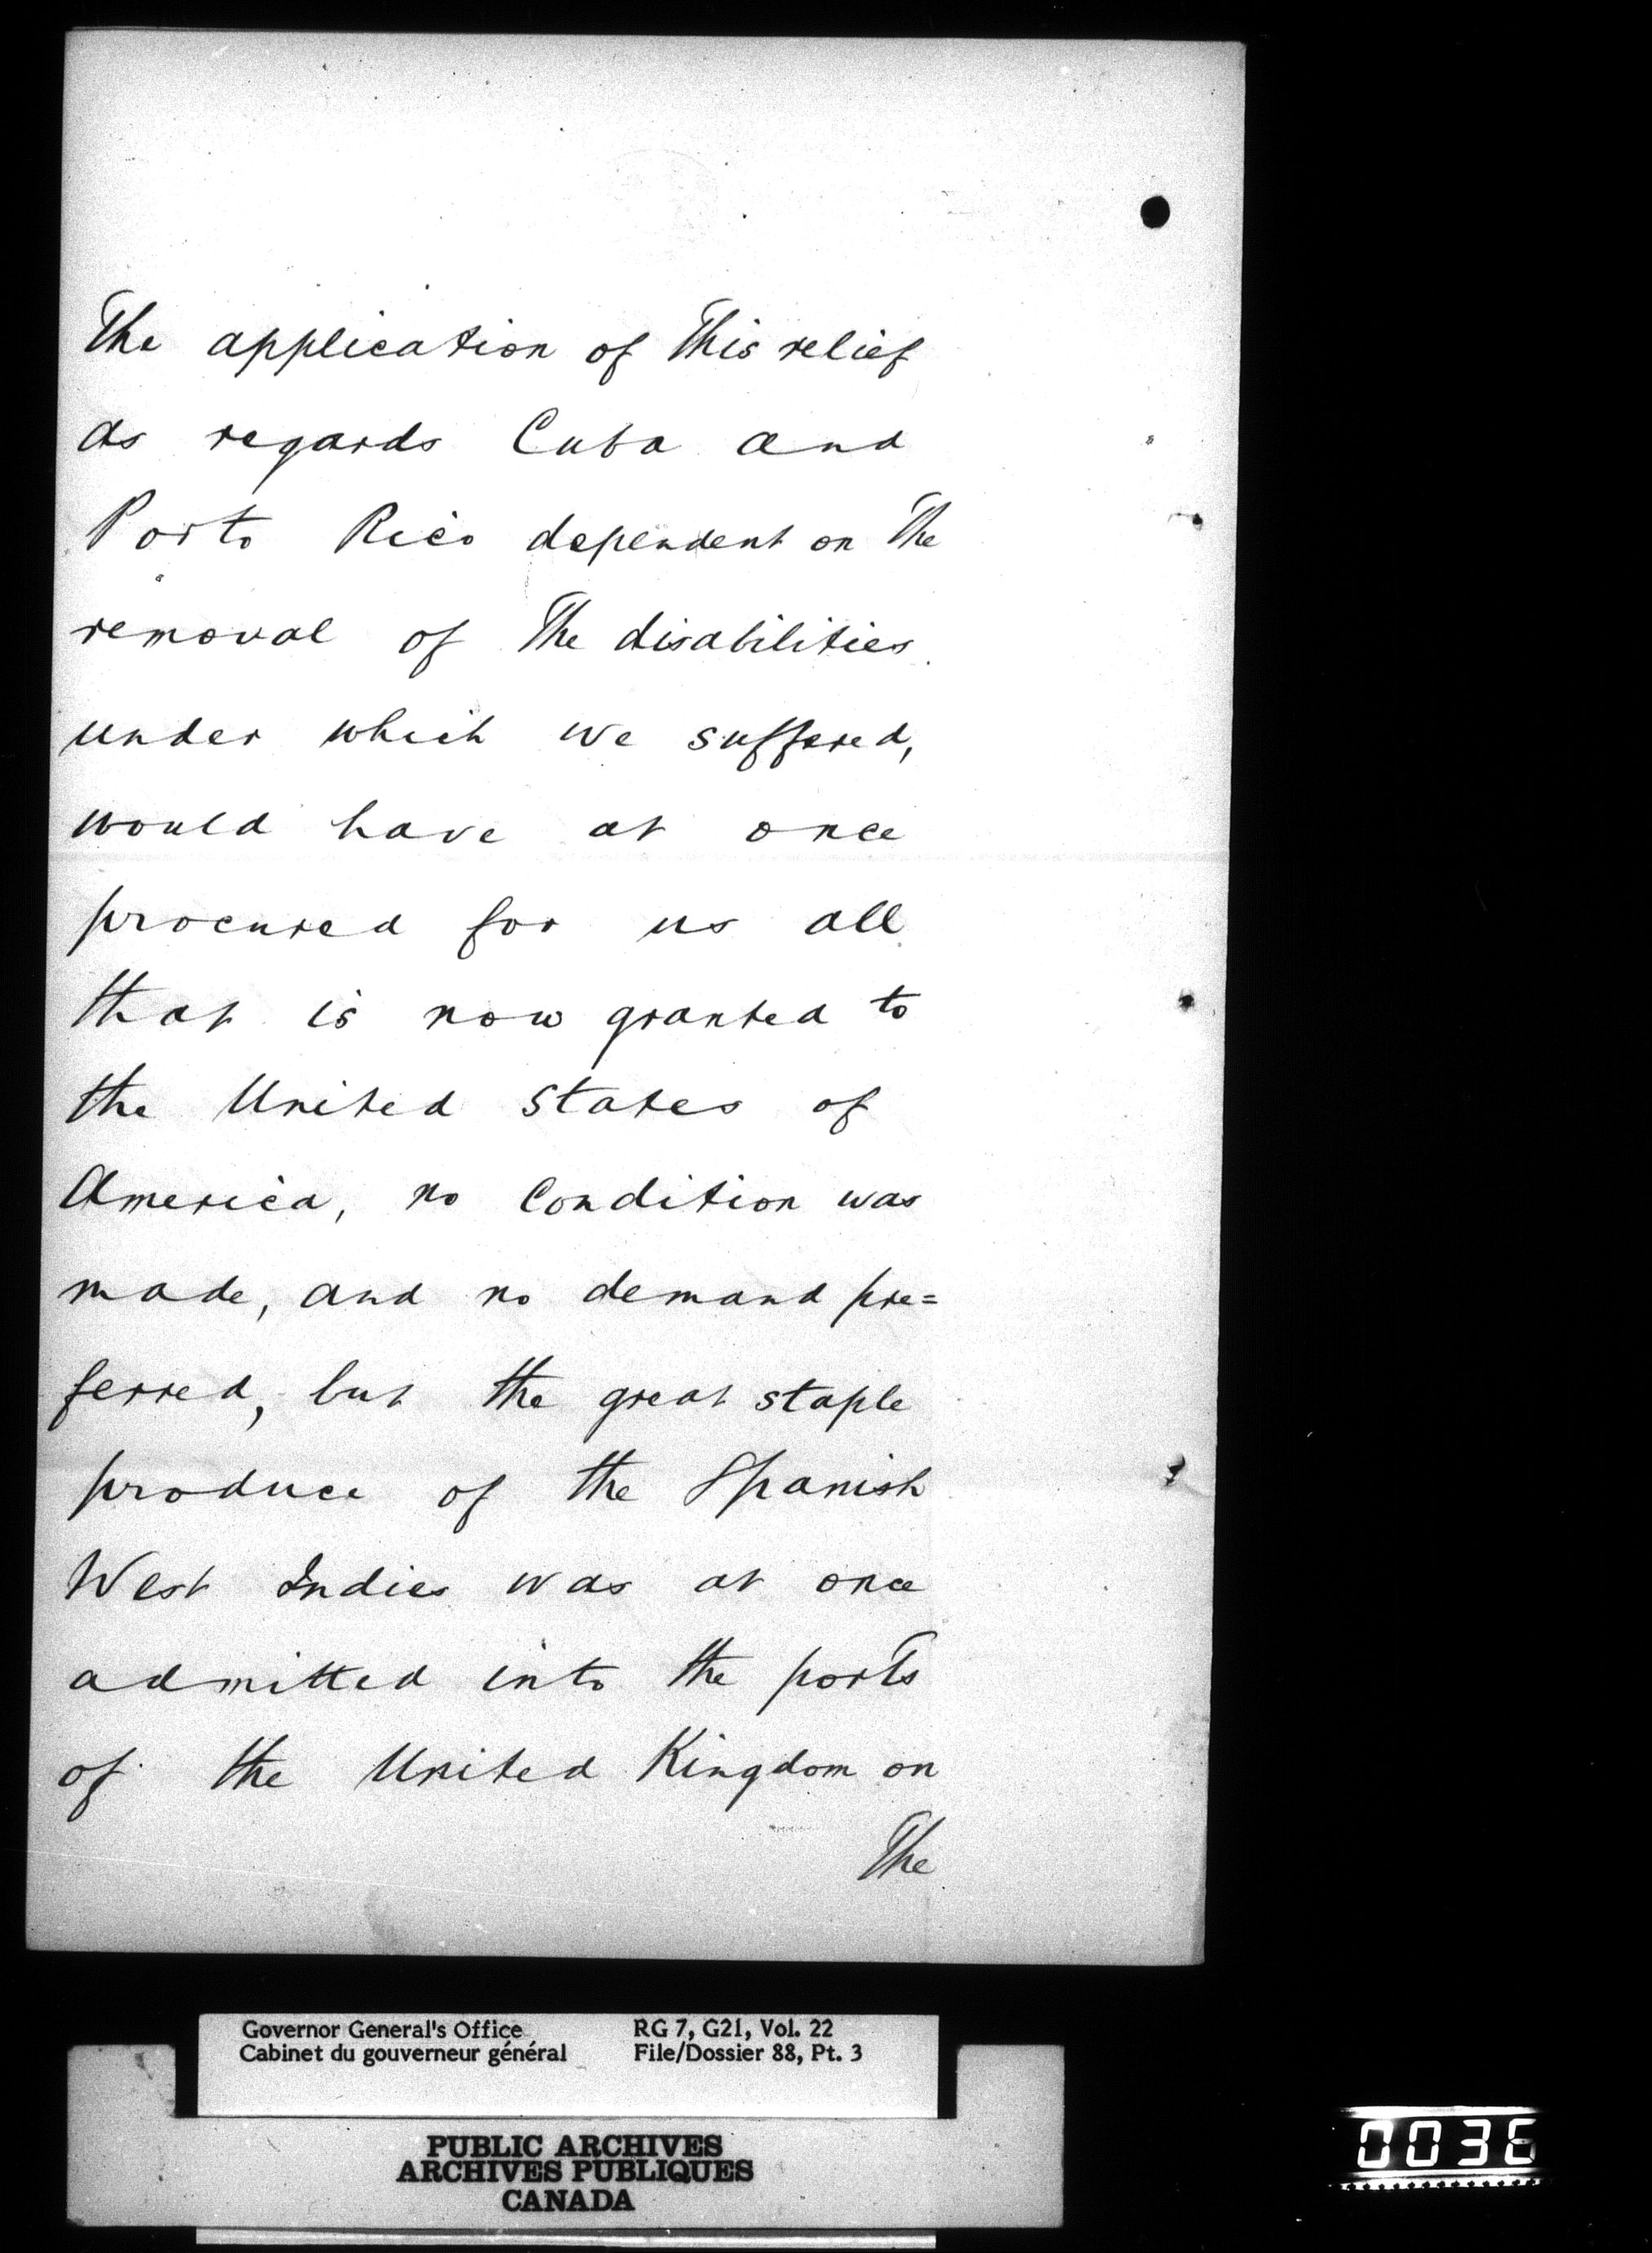 The application of This relief
as regards Cuba and
Porto Rico dependent on The
removal of The disabilities
under which we suffered,
would have at once
procured for us all
that is now granted to
the United States of
America, no Condition was
made, and no demand pre=
ferred, but the great staple
produce of the Spanish
West Indies was at once
admitted into the ports
of the United Kingdom on
The
Governor General's Office RG 7, G21, Vol. 22
Cabinet du gouverneur général File/Dossier 88, Pt. 3
PUBLIC ARCHIVES
ARCHIVES PUBLIQUES
CANADA